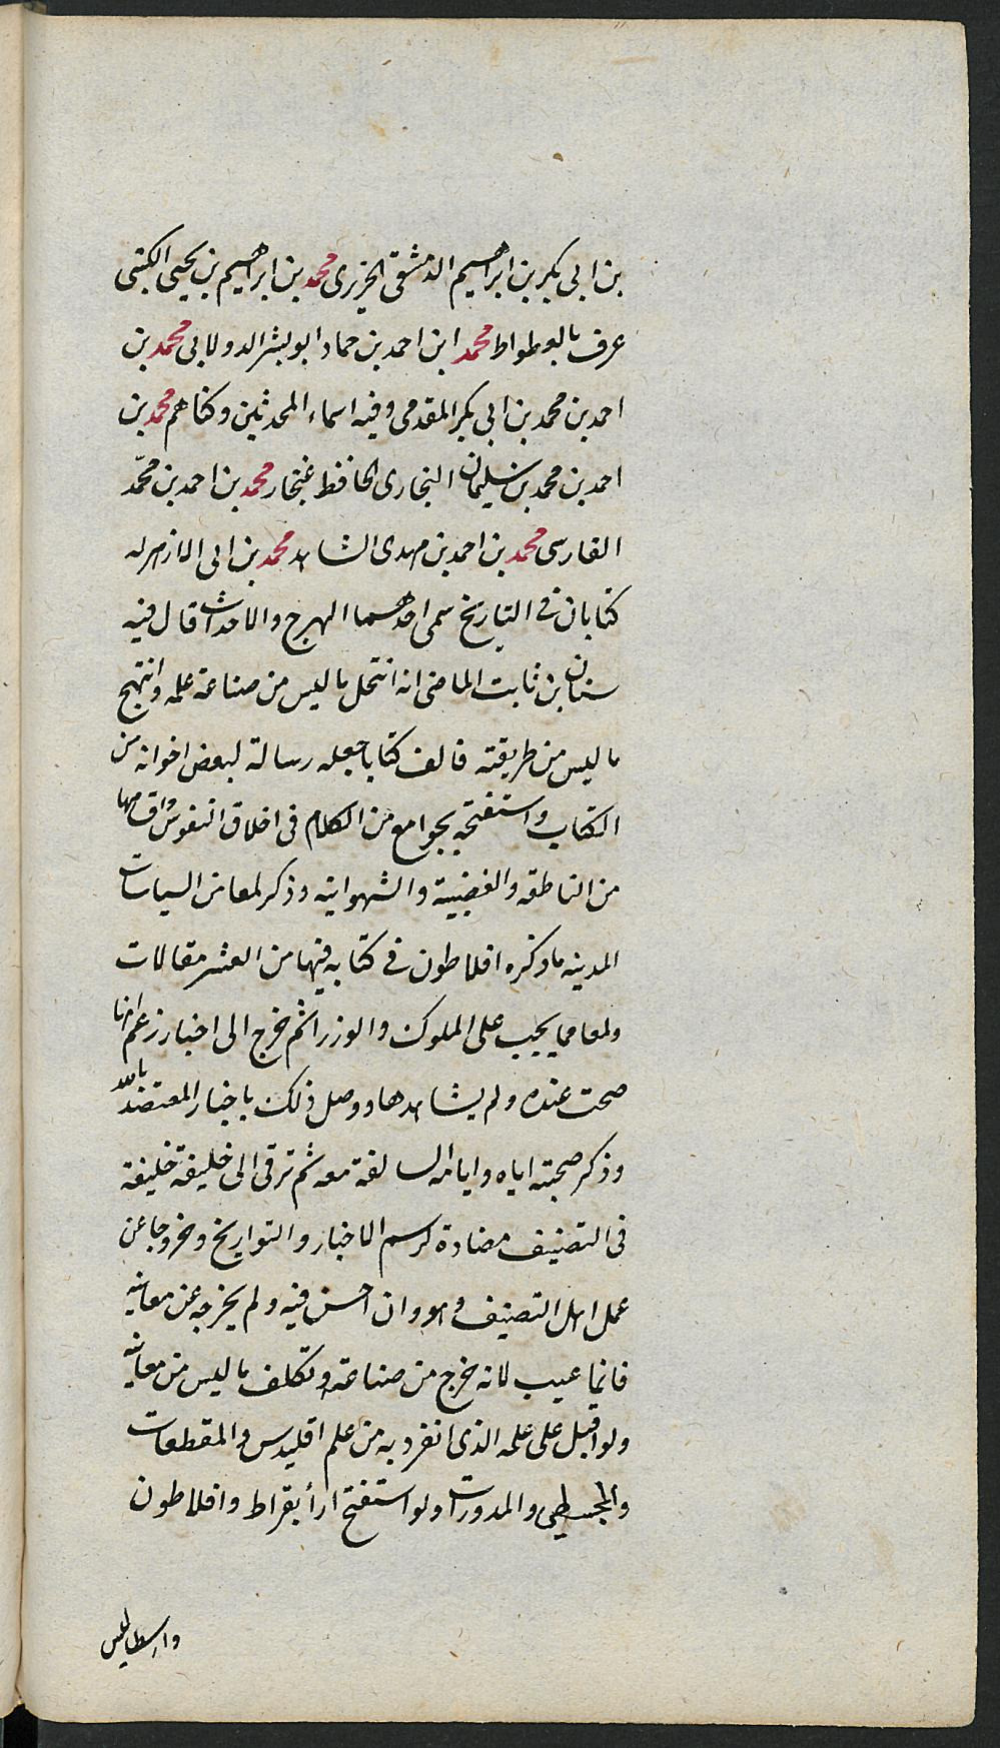 بن ابى بكر بن ابراهيم الدمشقى الجزرى محمد بن ابراهيم بن يحيى الكتبى
عرف بالوطواط محمد ابن احمد بن حماد ابو بشر الدولابى محمد بن
احمد بن محمد بن ابى بكر المقدمى وفيه اسماء المحدثين وكناهم محمد بن
احمد بن محمد بن سليمان البخارى الحافظ غنجار محمد بن احمد بن محمّد
الفارسى محمد بن احمد بن مهدى الشاهد محمد بن ابى الازهر له
كتابان فى التاريخ سمى احدهما الهرج والاحداث قال فيه
سنان بن ثابت الماضى انه انتحل ما ليس من صناعة علمه وانتهج
ما ليس من طريقته فالف كتابا جعله رسالة لبعض اخوانه من
الكتاب واستفتحه بجوامع من الكلام فى اخلاق النفوس واقسامها
من الناطقه والغضبية والشهوانيه وذكر لمعا من السياسات
المدينه ما ذكره افلاطون فى كتابه فيها من العشر مقالات
ولمعا مما يجب على الملوك والوزرا ثم خرج الى اخبار زعم انها
صحت عنده ولم يشاهدها ووصل ذلك باخبار المعتضد بالله
وذكر صحبته اياه وايامه السالفة معه ثم ترقى الى خليفة خليفة
فى التصنيف مضادة لرسم الاخبار والتواريخ وخروجا عن
عمل اهل التصنيف وهو وان احسن فيه ولم يخرجه عن معانيه
فانما عيب لانه خرج من صناعته وتكلف ما ليس من معانيه
ولو اقبل على علمه الذى انفرد به من علم اقليدس والمقطعات
والمجسطى والمدورات ولو استفتح ارأ بقراط وافلاطون
وارسطاليس